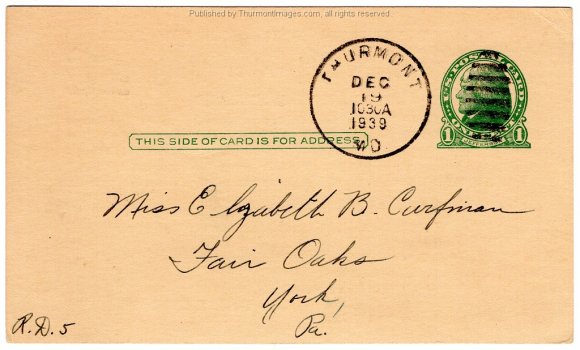 Published by ThurmontImages.com, all rights reserved.
THURMONT
DEC
19
1030A
1939
MD
U.S. POSTAL CARD
1 JEFFERSON 1
THIS SIDE OF CARD IS FOR ADDRESS
Miss Elizabeth B. Curfman
Fair Oaks
York,
Pa.
R.D. 5